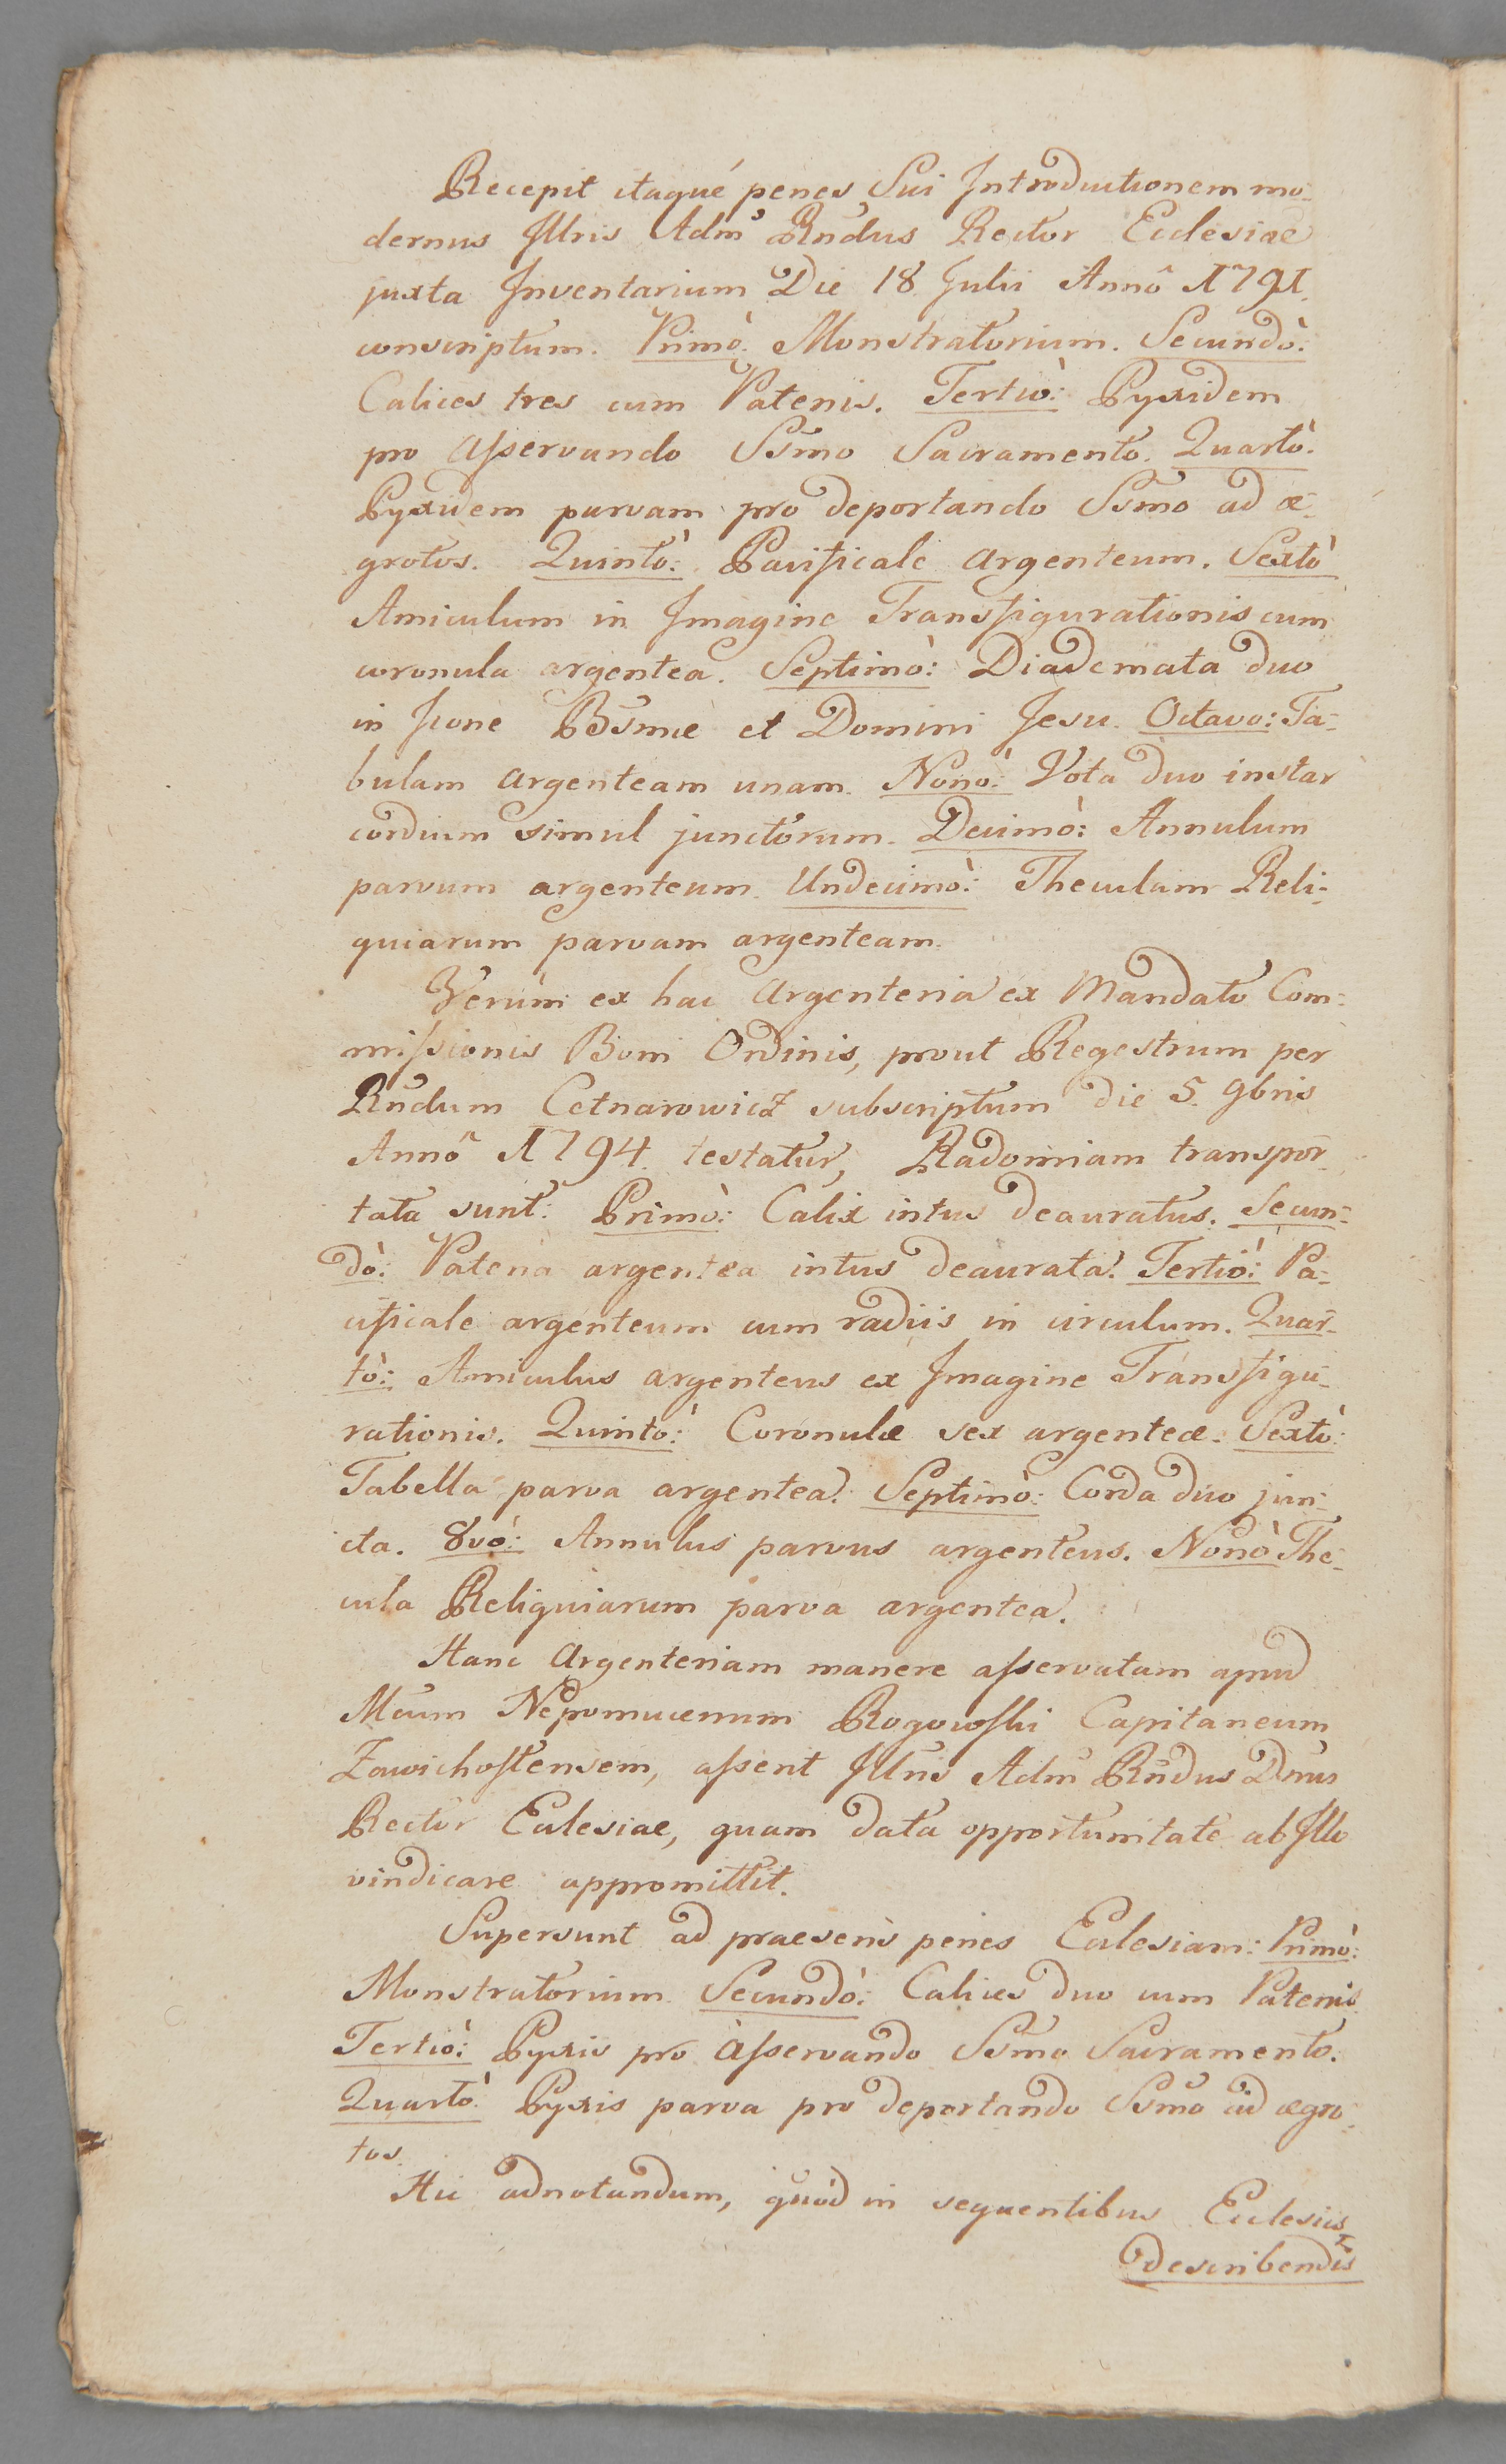 Recepit itaqué penes Sui Introductionem mo-
dernus Illris Adm̃ Rñdus Rector Ecclesiae
juxta Inventarium Die 18 Julii Annô 1791.
conscriptum. Primò. Monstratorium. Secundò:
Calices tres cum Patenis. Tertiò: Pyxidem
pro Aſservando Ss̃mo Sacramento. Quartò.
Pyxidem parvam pro deportando Ss̃mo ad æ-
grotos. Quintò: Pacificale argenteum. Sextò
Amiculum in Imagine Transfigurationis cum
coronula argentea. Septimò: Diademata duo
in Icone Bs̃mæ et Domini Jesu. Octavo: Ta-
bulam argenteam unam. Nonò: Vota duo instar
cordium simul junctorum. Decimò: Annulum
parvum argenteum. Undecimò: Theculam Reli-
quiarum parvam argenteam.
Verùm ex hac Argenteria ex Mandato Com-
miſsionis Boni Ordinis, prout Regestrum per
Rñdum Cetnarowicz subscriptum die 5. 9bris
Annô 1794. testatur, Radomiam transpor-
tata sunt: Primò: Calix intus deauratus. Secun-
dò: Patena argentea intus deaurata. Tertiò: Pa-
cificale argenteum cum radiis in circulum. Quar-
tò: Amiculus argenteus ex Imagine Transfigu-
rationis. Quintò: Coronulæ sex argenteæ. Sextò:
Tabella parva argentea. Septimò: Corda duo jun-
cta. 8vó: Annulus parvus argenteus. Nonò The-
cula Reliquiarum parva argentea.
Hanc Argenteriam manere aſservatam apud
Mcum Nepomucenum Rogowſki Capitaneum
Zawichoſtensem, aſserit Illris Adm̃ Rñdus Dñus
Rector Ecclesiae, quam data opportunitate ab Illo
vindicare appromittit.
Supersunt ad praesens penes Ecclesiam: Primò:
Monstratorium. Secundò: Calices duo cum Patenis
Tertiò: Pyxis pro Aſservando Ss̃mo Sacramento.
Quartò. Pyxis parva pro deportando Ss̃mo ad ægro-
tos.
Hic adnotandum, quòd in sequentibus Ecclesiis
describendis